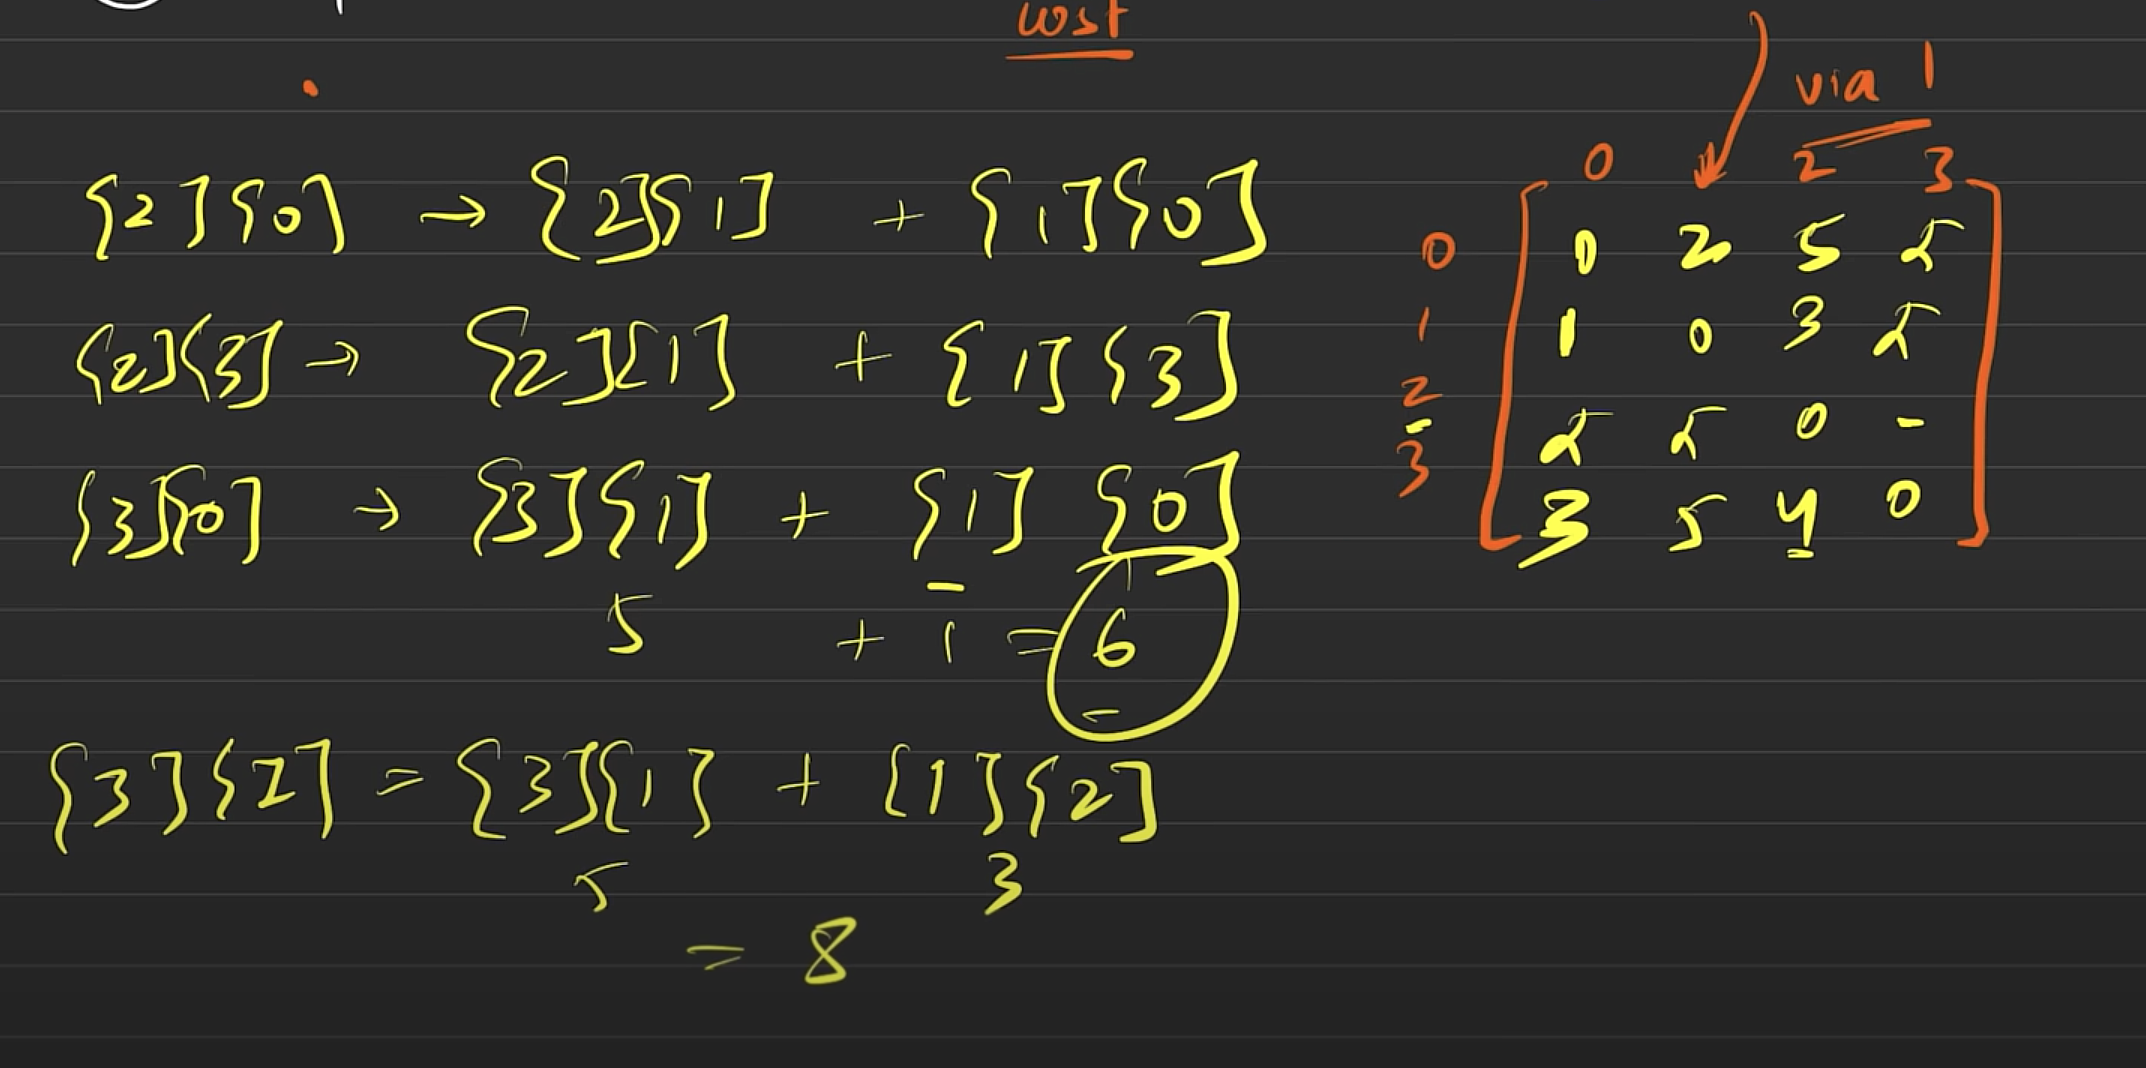 cost
via 1
[2][0] → [2][1] + [1][0]
[2][3] → [2][1] + [1][3]
[3][0] → [3][1] + [1][0]
5 + 1 = 6
[3][2] = [3][1] + [1][2]
5 3
= 8
0 2 3
0 0 2 5
1 1 0 3
2 0 -
3 3 5 4 0